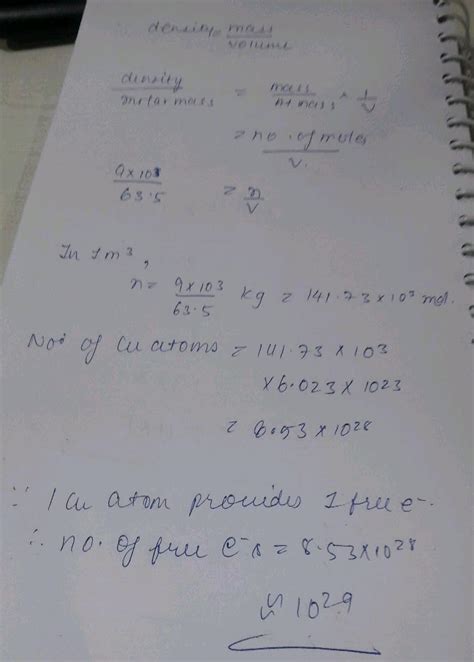 density = mass / volume
density / molar mass = mass / m+ mass × 1/V
= no. of moles / V.
9×10³ / 63.5 = n / V
In 1m³,
n = 9×10³ / 63.5 kg = 141.73×10³ mol.
No. of Cu atoms = 141.73 × 10³
×6.023×10²³
= 8.53×10²⁸
∵ 1 Cu atom provides 1 free e⁻.
∴ no. of free e⁻s = 8.53×10²⁸
≈ 10²⁹